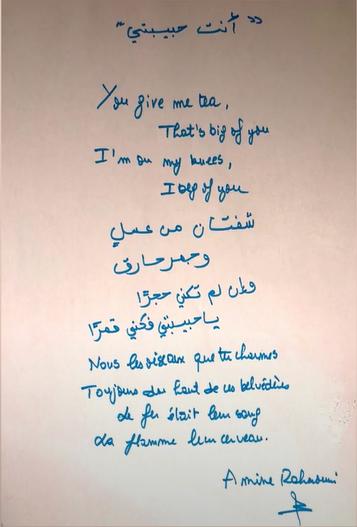 "أنت حبيبتي"
You give me tea,
That's big of you
I'm on my knees,
I beg of you
شفتان من عسلٍ
وجمر حارق
وإن لم تكني حجرًا
يا حبيبتي فكني قمرًا
Nous les oiseaux que tu charmes
Toujours du haut de ces belvédères
de fer était leur sang
La flamme leur cerveau.
Amine